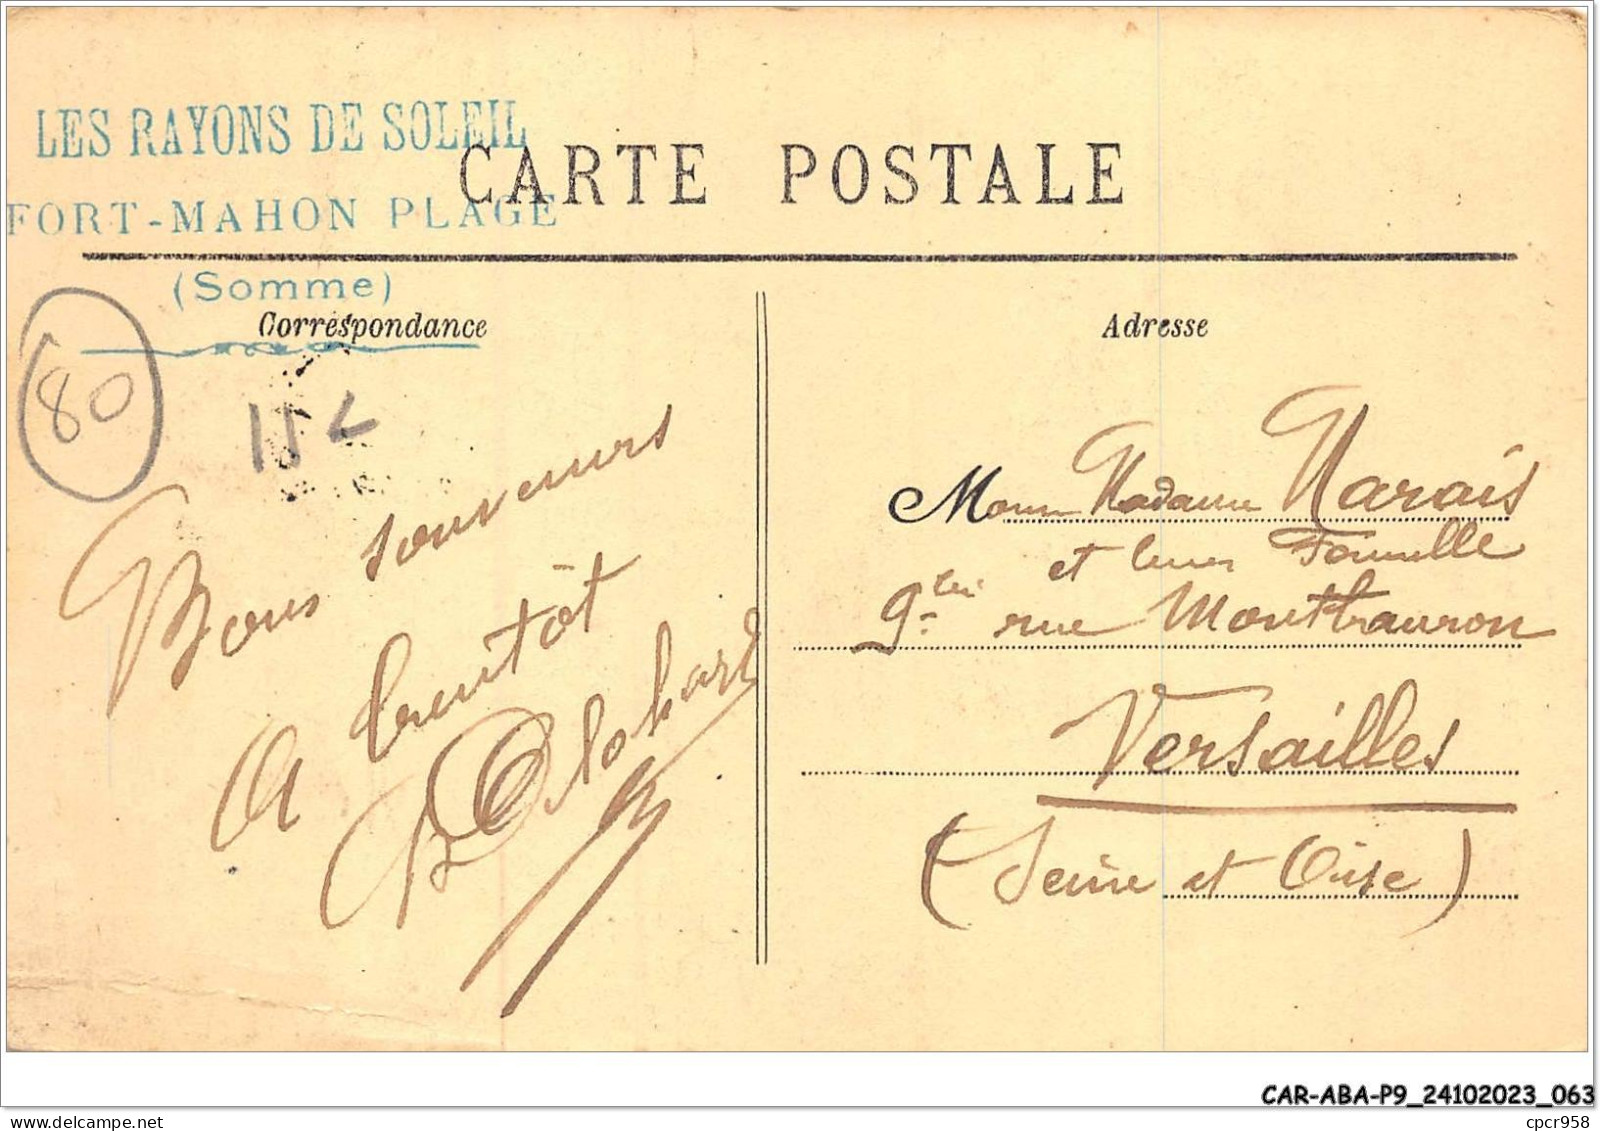 LES RAYONS DE SOLEIL
FORT-MAHON PLAGE
(Somme)
CARTE POSTALE
Correspondance
Adresse
80
Bons souvenirs
A bientôt
Madame Marais
et leur Famille
9 rue Montbauron
Versailles
(Seine et Oise)
CAR-ABA-P9_24102023_063
delcampe.net
cpcr958